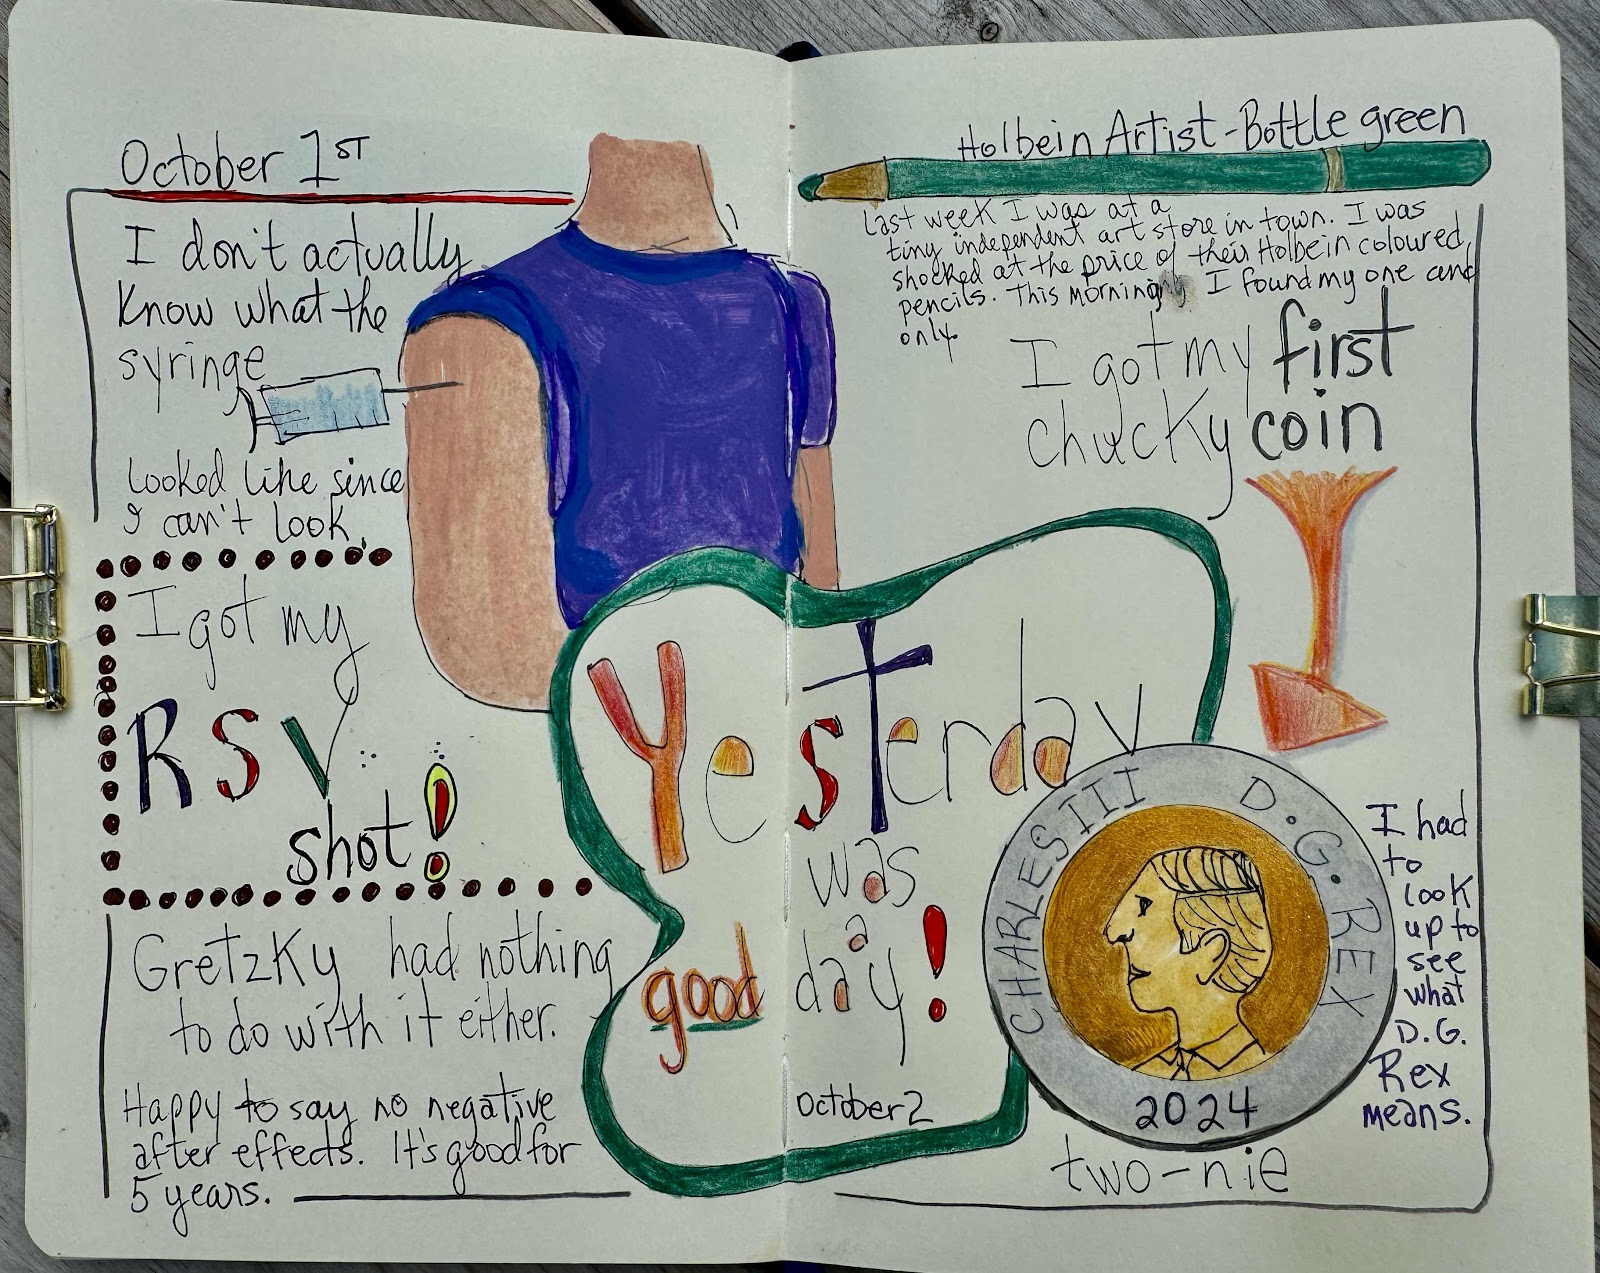 October 1ST
I don't actually
know what the
syringe
looked like since
I can't look.
I got my
RSV
shot!
Gretzky had nothing
to do with it either.
Happy to say no negative
after effects. It's good for
5 years.
Yesterday
was
a
good day!
October 2
Holbein Artist - Bottle green
Last week I was at a
tiny independent art store in town. I was
shocked at the price of their Holbein coloured
pencils. This morning I found my one and
only.
I got my first
chucky coin
CHARLES III D.G.REX
2024
two-nie
I had
to
look
up to
see
what
D.G.
Rex
means.